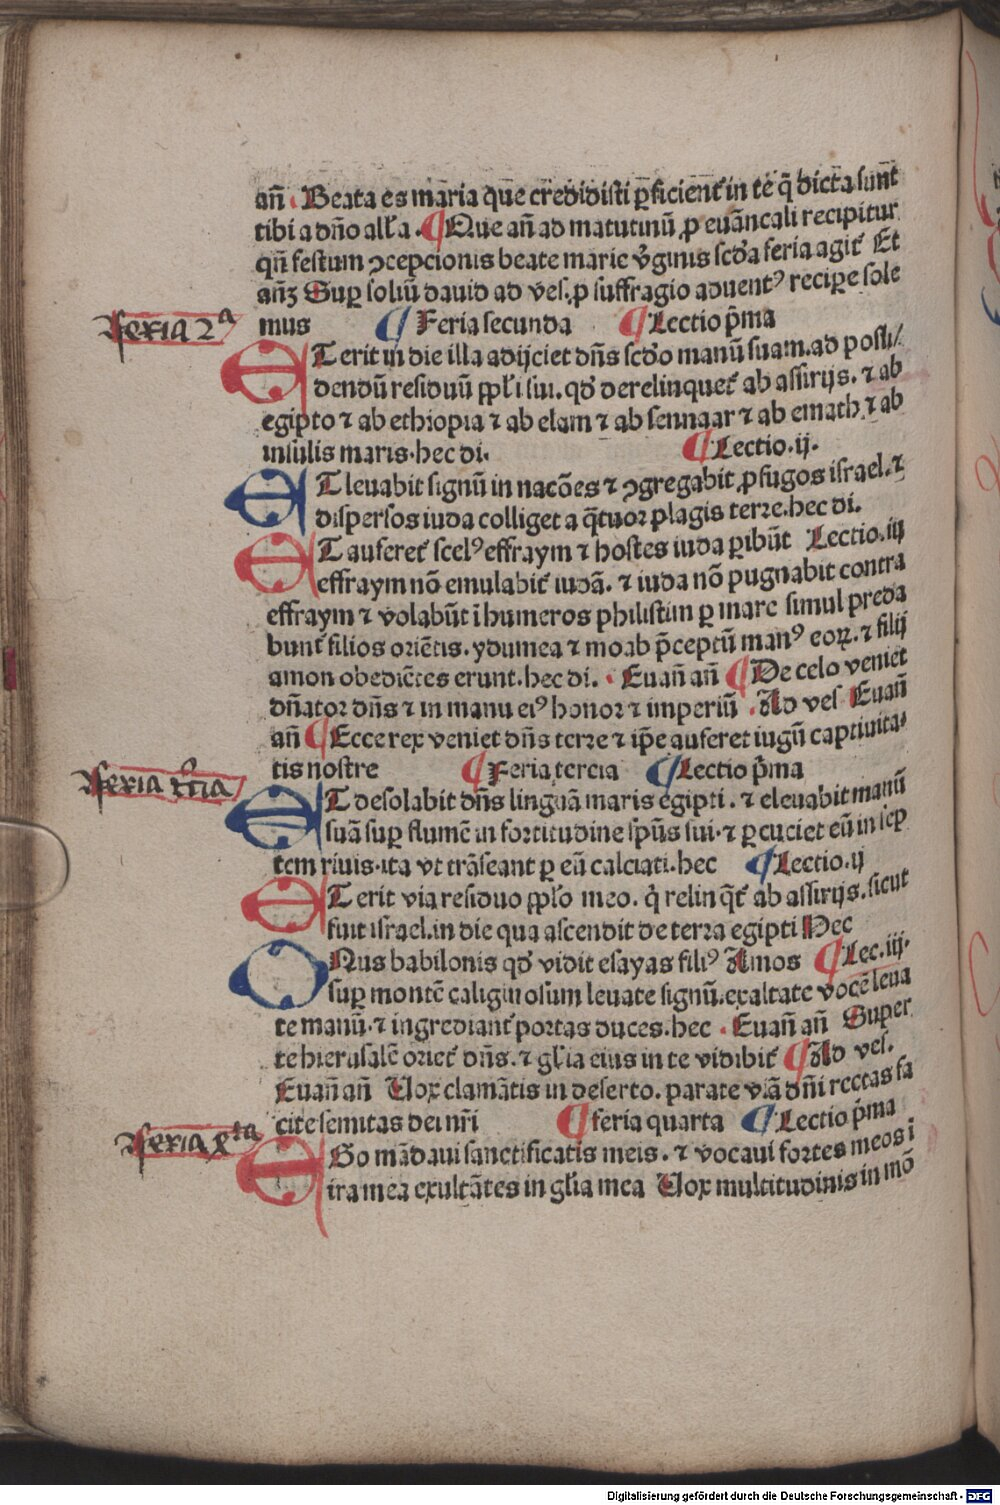 an̄. Beata es maria que credidisti ꝑficient᷑ in te q̄ dicta sunt
tibi a dn̄o all'a. ¶ Que an̄ ad matutinū ꝓ euāncali recipitur
qn̄ festum ꝯcepcionis beate marie v̓ginis scd̓a feria agit᷑ Et
an̄ꝫ Suꝑ soliū dauid ad ves. ꝓ suffragio aduentꝰ reciꝑe sole
mus ¶ Feria secunda ¶ Lectio p̄ma
feria 2ª
ET erit in die illa adijciet dn̄s scd̓o manū suam. ad possi/
dendū residuū ppl'i sui. qd̓ derelinquet᷑ ab assirijs. ⁊ ab
egipto ⁊ ab ethiopia ⁊ ab elam ⁊ ab sennaar ⁊ ab emath ⁊ ab
insulis maris. hec di. ¶ Lectio. ij.
ET leuabit signū in nacōes ⁊ ꝯgregabit ꝓfugos israel. ⁊
dispersos iuda colliget a q̄tuor plagis terre. hec di.
ET auferet᷑ scelꝰ effraym ⁊ hostes iuda ꝑibūt Lectio. iij
effraym nō emulabit᷑ iudā. ⁊ iuda nō pugnabit contra
effraym ⁊ volabūt ī humeros philistim ꝑ mare simul preda
bunt᷑ filios oriētis. ydumea ⁊ moab p̄ceptū manꝰ eoꝝ. ⁊ filij
amon obediētes erunt. hec di. Euan̄ an̄ ¶ De celo veniet
dn̄ator dn̄s ⁊ in manu eiꝰ honor ⁊ imperiū. Ad ves Euan̄
an̄ ¶ Ecce rex veniet dn̄s terre ⁊ ip̄e auferet iugū captiuita-
tis nostre ¶ Feria tercia ¶ Lectio p̄ma
feria t̓cia
ET desolabit dn̄s linguā maris egipti. ⁊ eleuabit manū
suā suꝑ flumē in fortitudine sp̄us sui. ⁊ ꝑcuciet eū in sep
tem riuis. ita vt trāseant ꝑ eū calciati. hec ¶ Lectio. ij
ET erit via residuo ppl'o meo. q̓ relinq̄t᷑ ab assirijs. sicut
fuit israel. in die qua ascendit de terra egipti Hec
ONus babilonis qd̓ vidit esayas filiꝰ Amos ¶ Lec. iij.
suꝑ montē caliginosum leuate signū. exaltate vocē leua
te manū. ⁊ ingrediant᷑ portas duces. hec. Euan̄ an̄ Super
te hierusalē oriet᷑ dn̄s. ⁊ gl'ia eius in te vidibit᷑ ¶ Ad ves.
Euan̄ an̄ Vox clamātis in deserto. parate viā dn̄i rectas fa
cite semitas dei nr̄i ¶ feria quarta ¶ Lectio p̄ma
feria 4ta
EGo mādaui sanctificatis meis. ⁊ vocaui fortes meos i
ira mea exultātes in gl'ia mea Vox multitudinis in mō
Digitalisierung gefördert durch die Deutsche Forschungsgemeinschaft - DFG